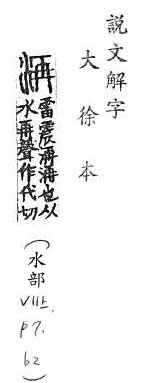 説文解字
大徐本
洅
雷震洅洅也从
水再聲作代切
(水部
VIII上.
P7.
b2)